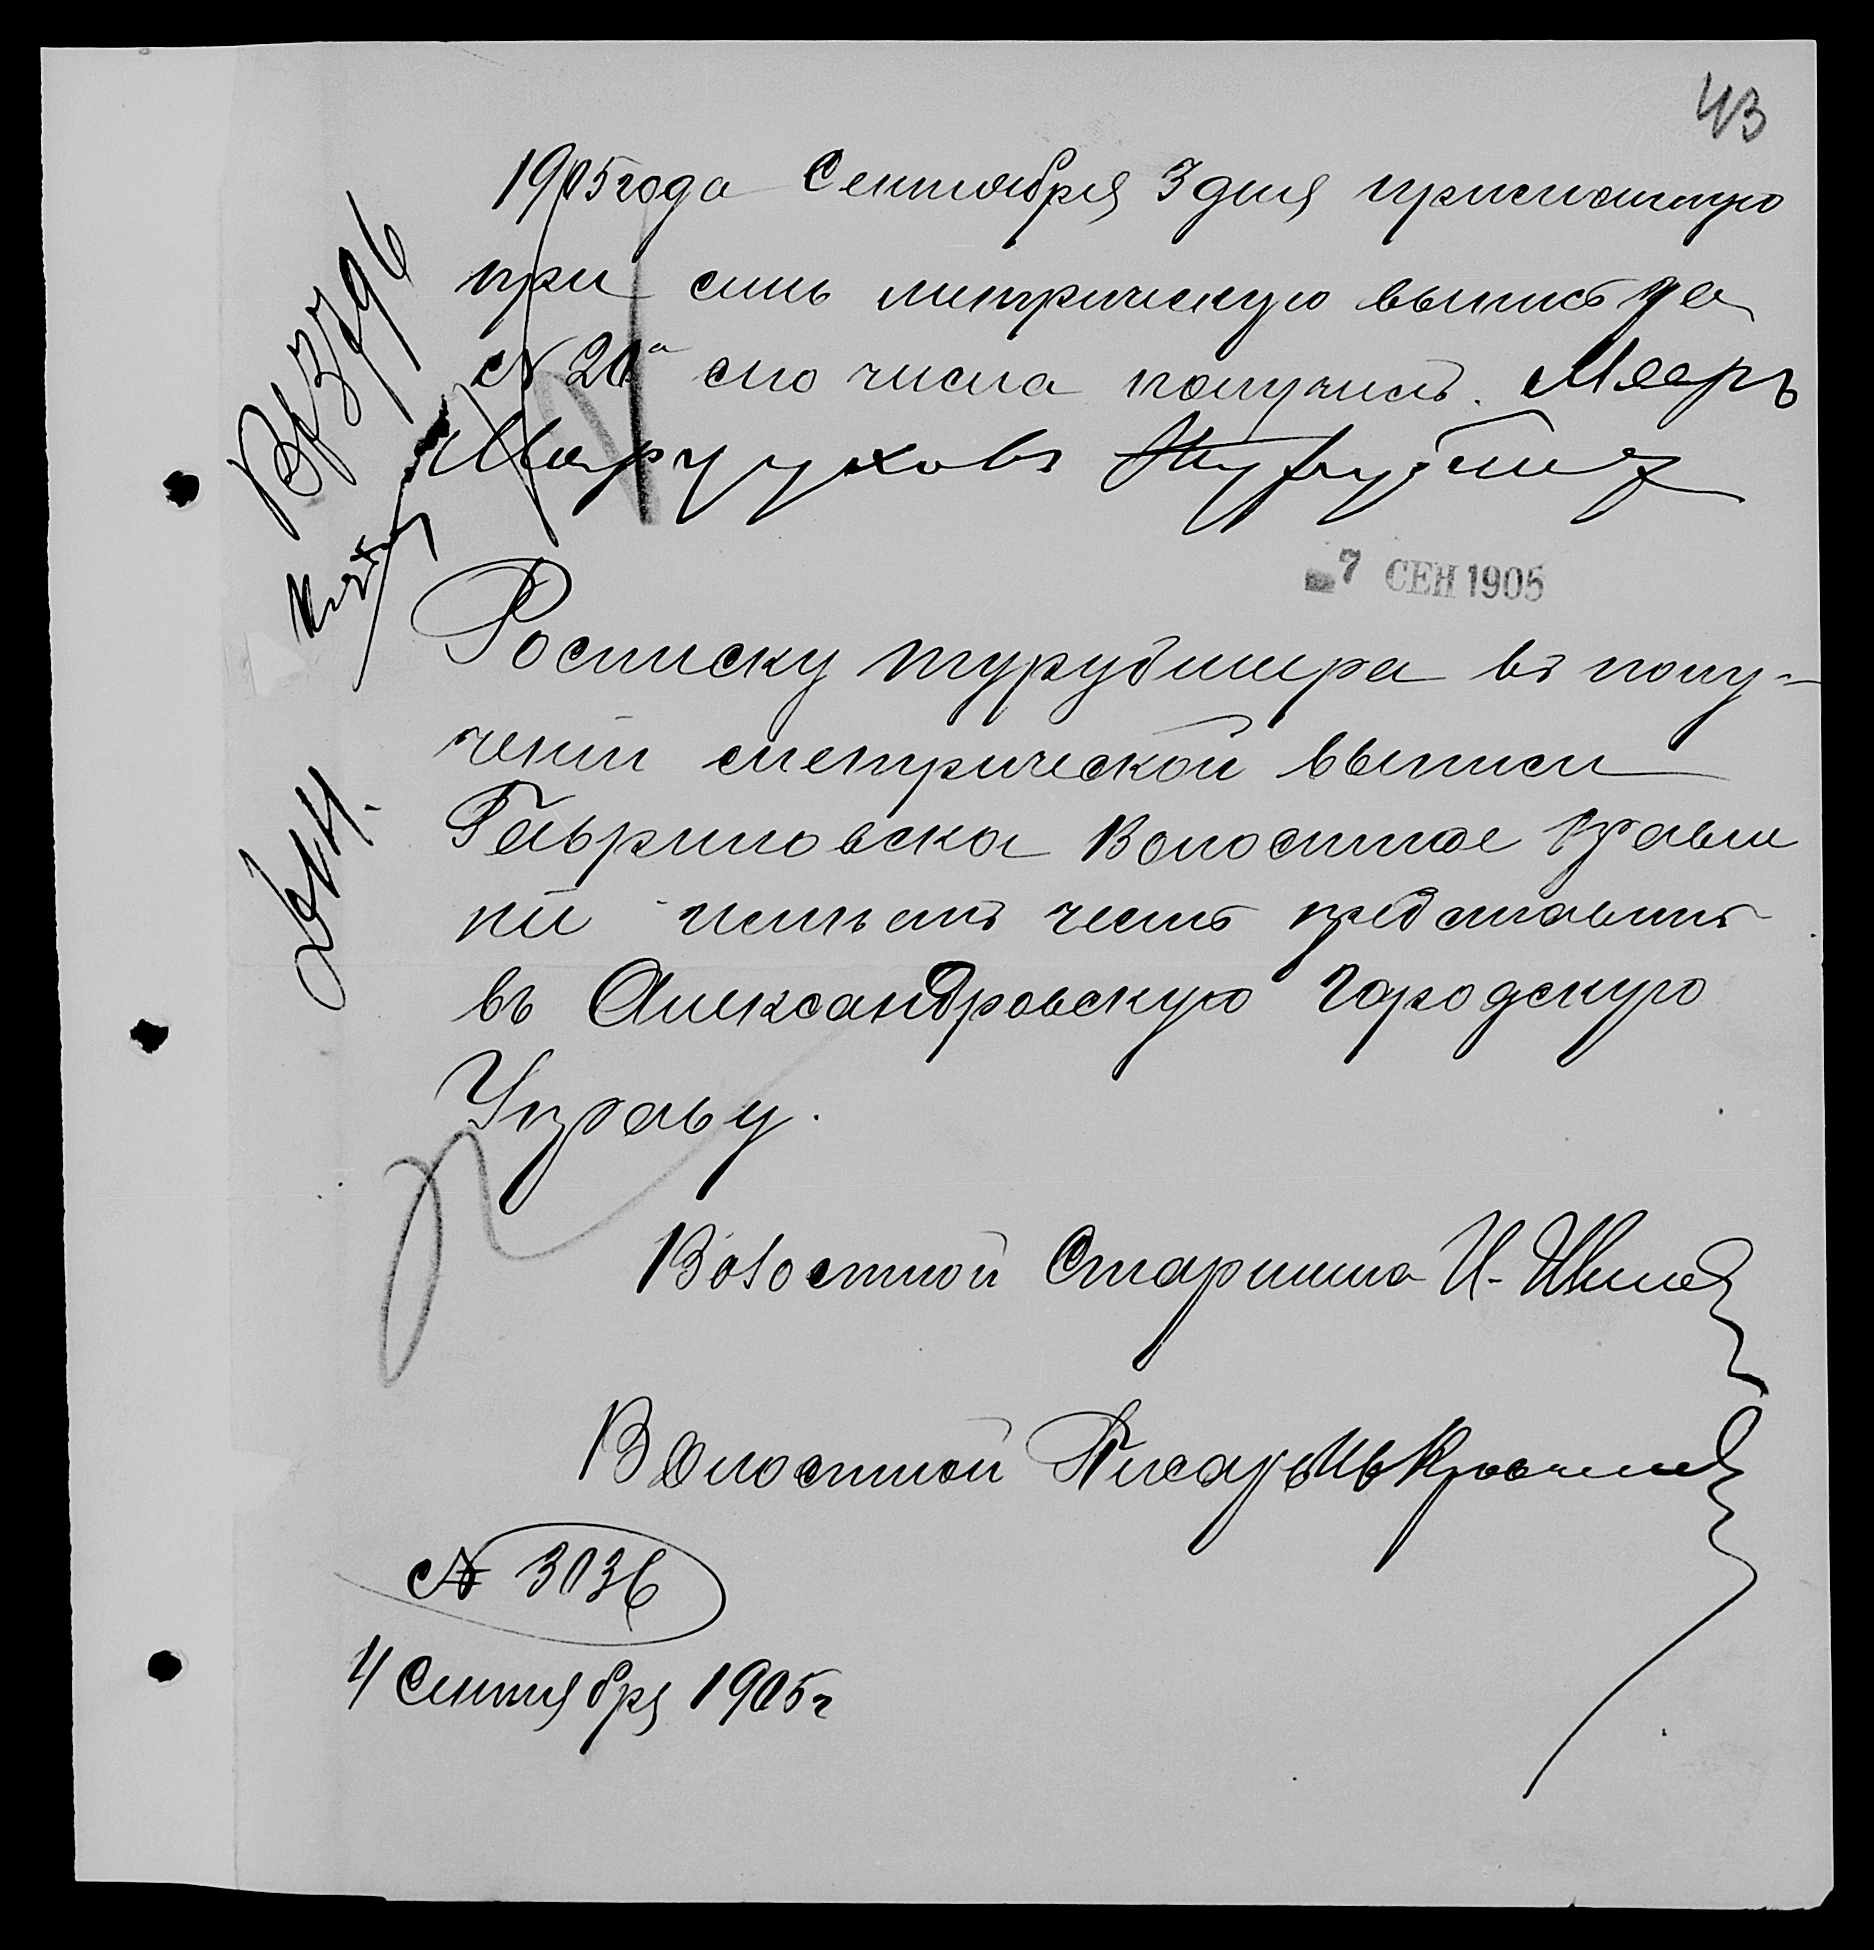 43
1905 года Сентября 3 дня присланную
при симъ метрическую выпись за
№ 20а сего числа получилъ. Мееръ
7 СЕН 1905
Росписку Турубинера въ полу-
чении метрической выписи
Гавриловское Волостное Правле
ніе имѣетъ честь представить
въ Александровскую Городскую
Управу.
Волостной Старшина И.
Волостной Писарь
№ 3036
4 Сентября 1905 г
Вх 3796